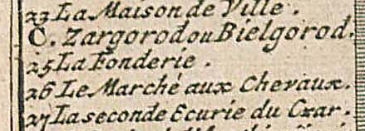 23 La Maison de Ville.
C. Zargorod ou Bielgorod.
25 La Fonderie.
26 Le Marché aux Chevaux.
27 La seconde Ecurie du Czar.